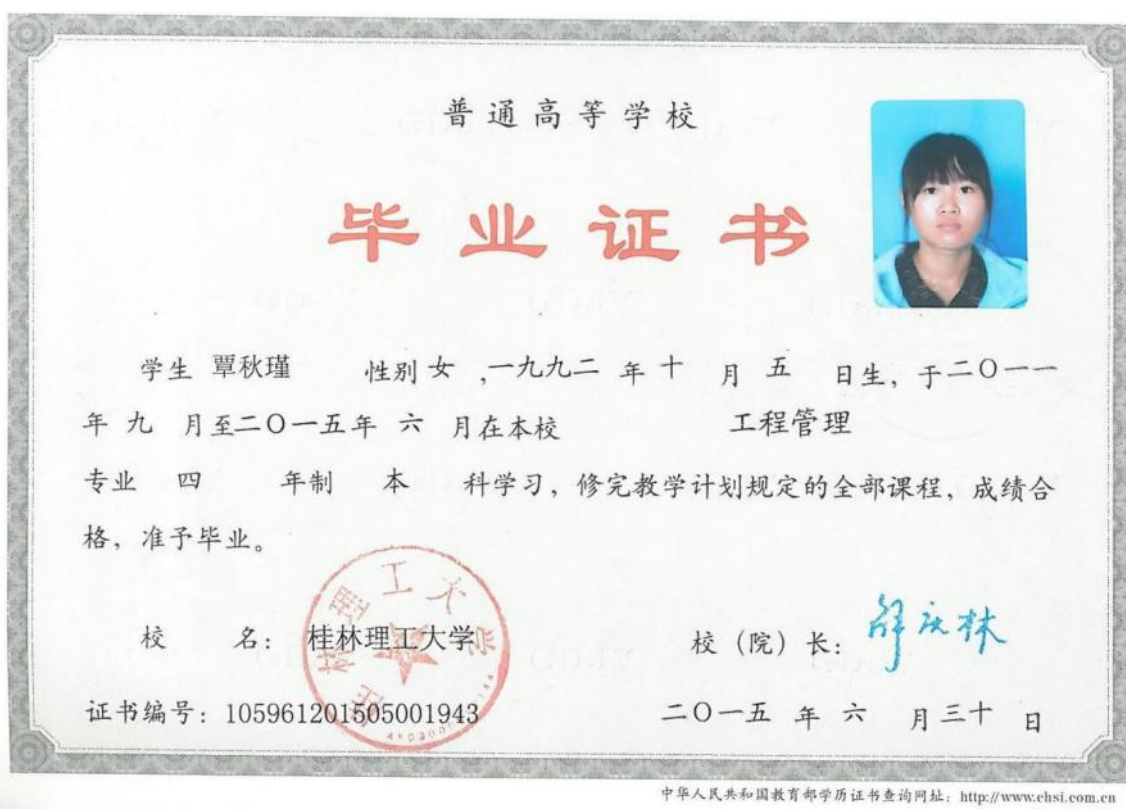 普通高等学校
毕业证书
学生 覃秋瑾 性别 女 ,一九九二 年 十 月 五 日生，于二〇一一
年 九 月至二〇一五年 六 月在本校 工程管理
专业 四 年制 本 科学习，修完教学计划规定的全部课程，成绩合
格，准予毕业。
桂林理工大学
校 名： 桂林理工大学 校（院）长：
证书编号：105961201505001943 二〇一五 年 六 月三十 日
中华人民共和国教育部学历证书查询网址：http://www.chsi.com.cn